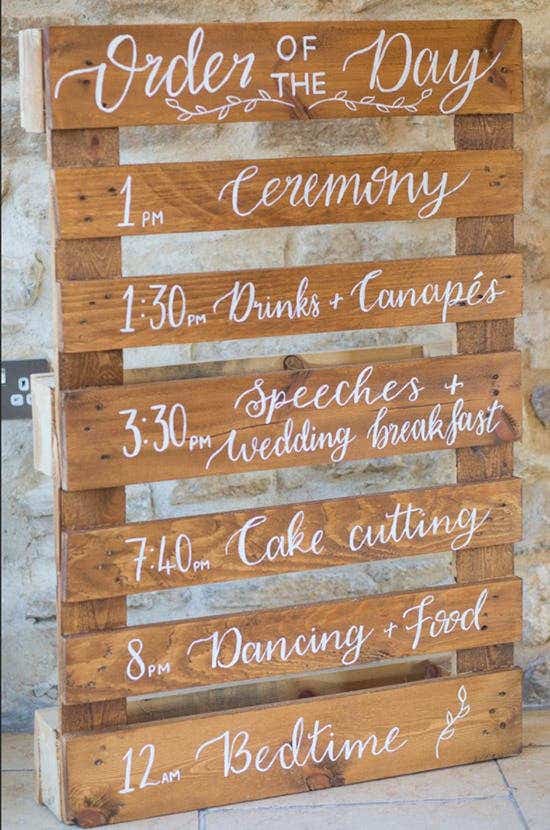 Order OF THE Day
1 PM Ceremony
1:30 PM Drinks + Canapés
3:30 PM Speeches +
Wedding breakfast
7:40 PM Cake cutting
8 PM Dancing + Food
12 AM Bedtime